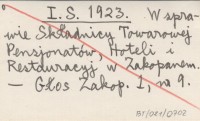 I. S. 1923. W spra-
wie Składnicy Towarowej
Pensjonatów, Hoteli i
Restauracyj, w Zakopanem.
— Głos Zakop. I, n 9.
BT/ORG/0702